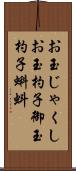 お玉じゃくし
お玉杓子御玉
杓子蝌蚪